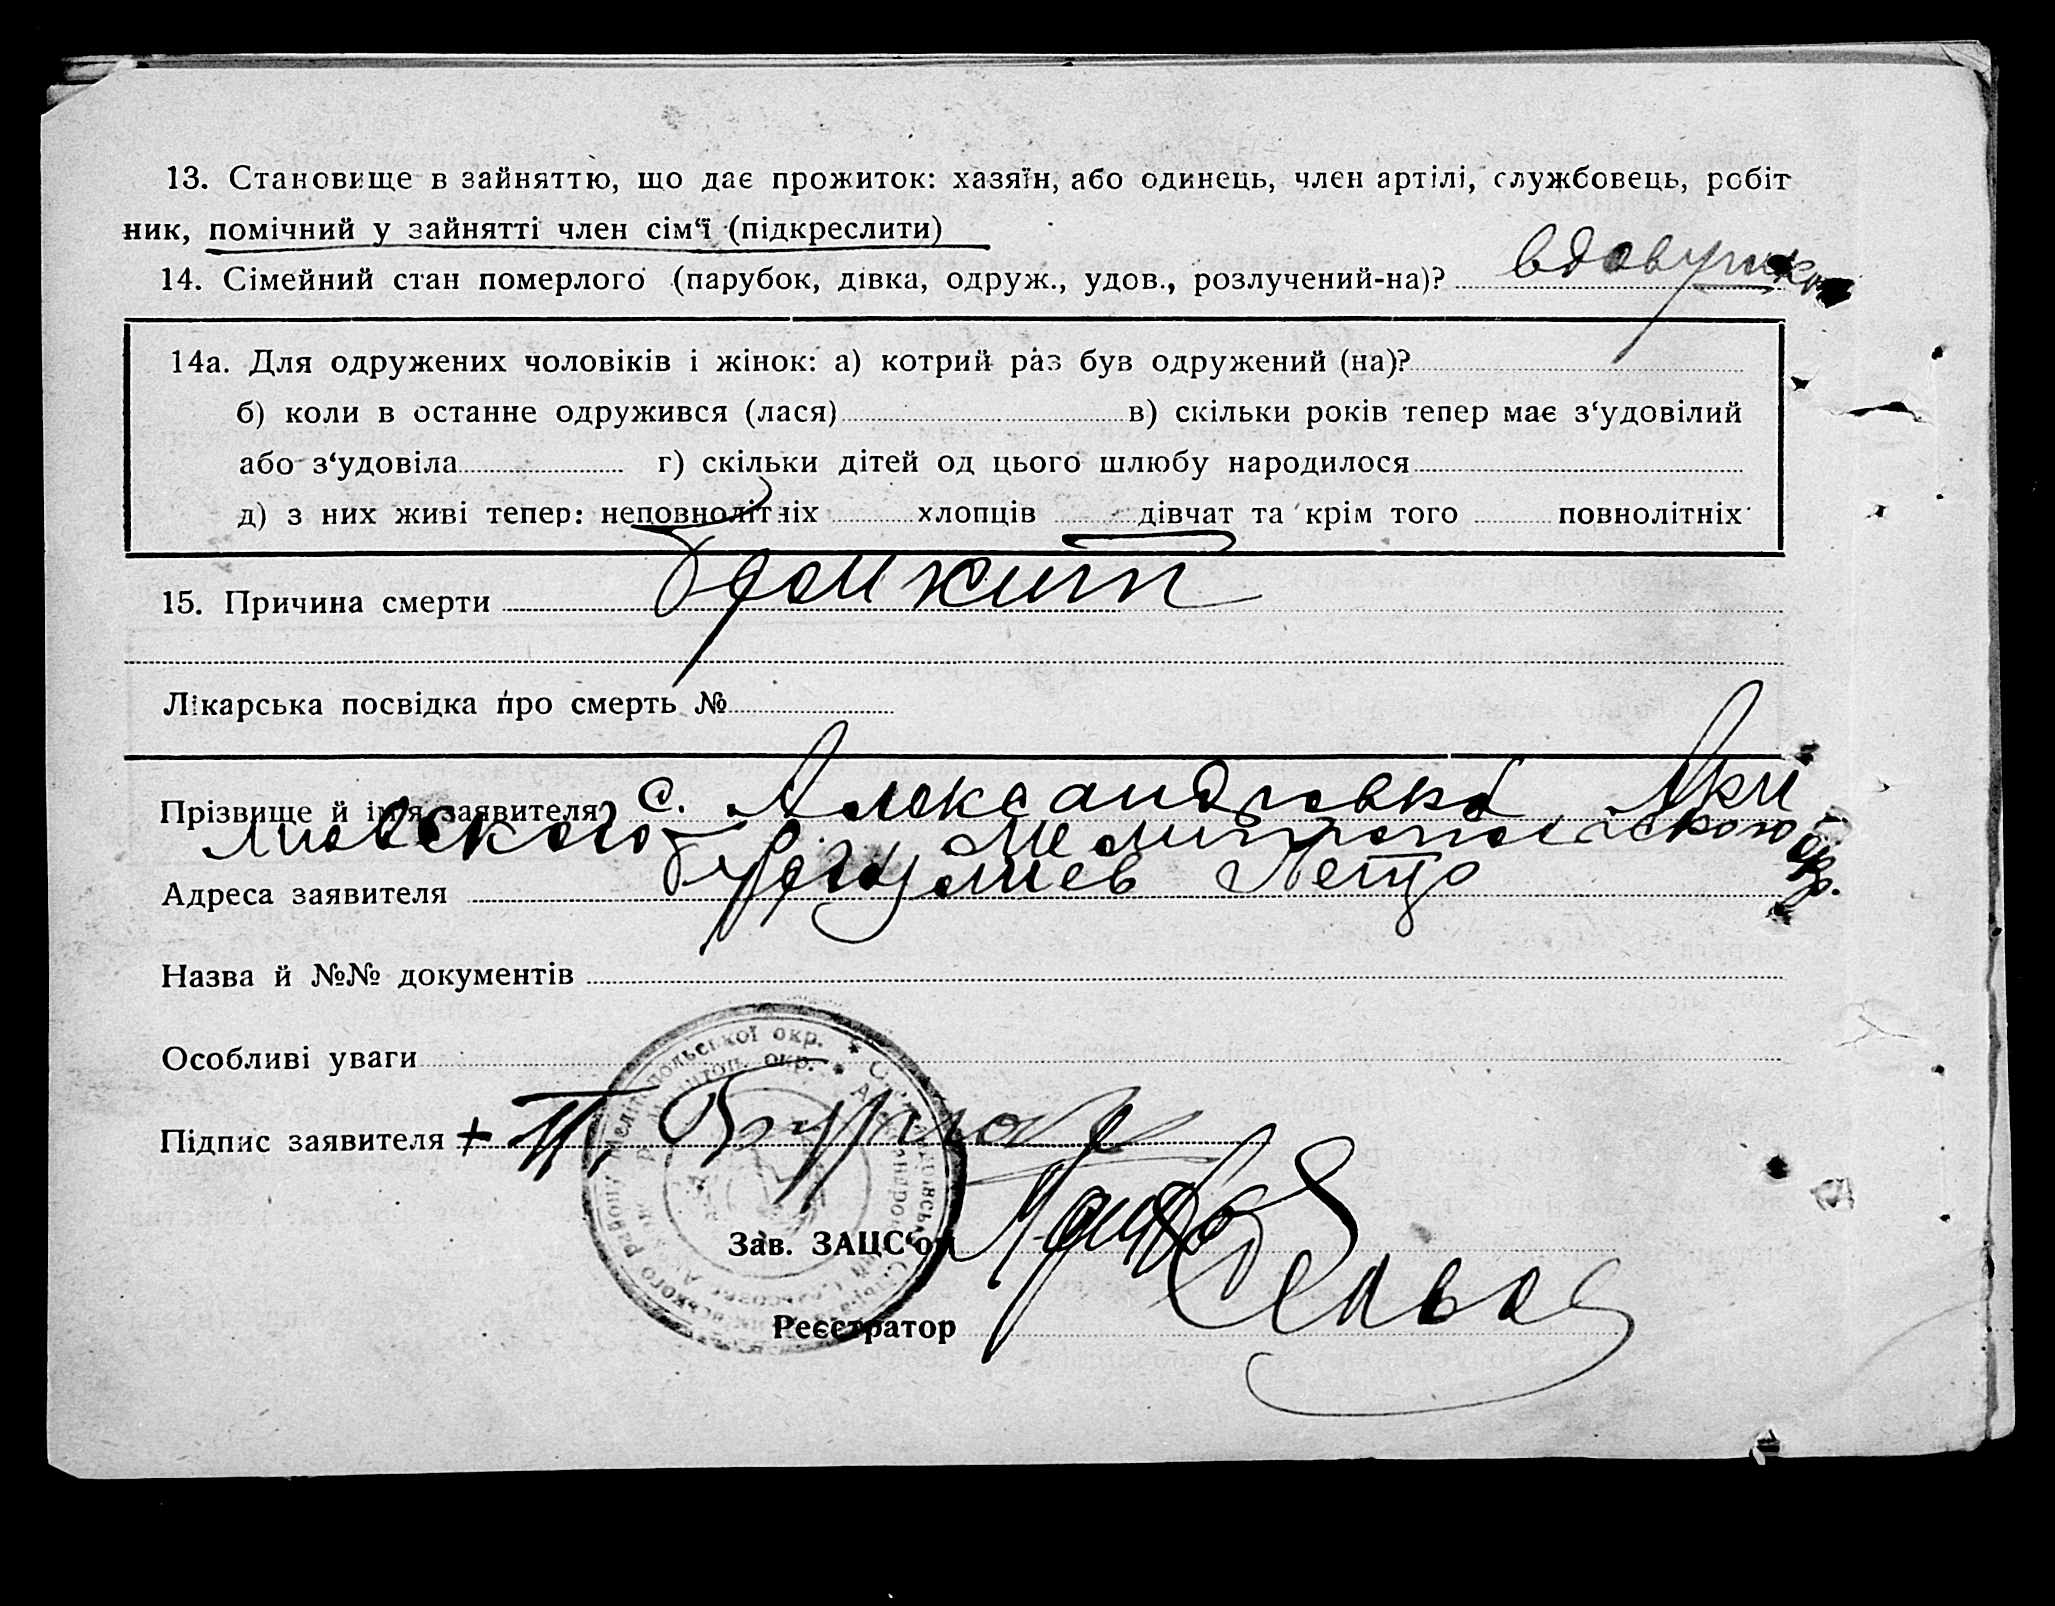 13. Становище в зайняттю, що дає прожиток: хазяїн, або одинець, член артілі, службовець, робіт
ник, помічний у зайнятті член сім‘ї (підкреслити)
14. Сімейний стан померлого (парубок, дівка, одруж., удов., розлучений-на)?
14а. Для одружених чоловіків і жінок: а) котрий раз був одружений (на)?
б) коли в останнє одружився (лася) в) скільки років тепер має з‘удовілий
або з‘удовіла г) скільки дітей од цього шлюбу народилося
д) з них живі тепер: неповнолітніх хлопців дівчат та крім того повнолітніх
15. Причина смерти бронхит
Лікарська посвідка про смерть №
Прізвище й ім‘я заявителя с. Александровка Аки
мовского Мелитопольского окр.
Адреса заявителя Петро
Назва й №№ документів
Особливі уваги
Підпис заявителя +
Зав. ЗАЦС‘ом
Реєстратор